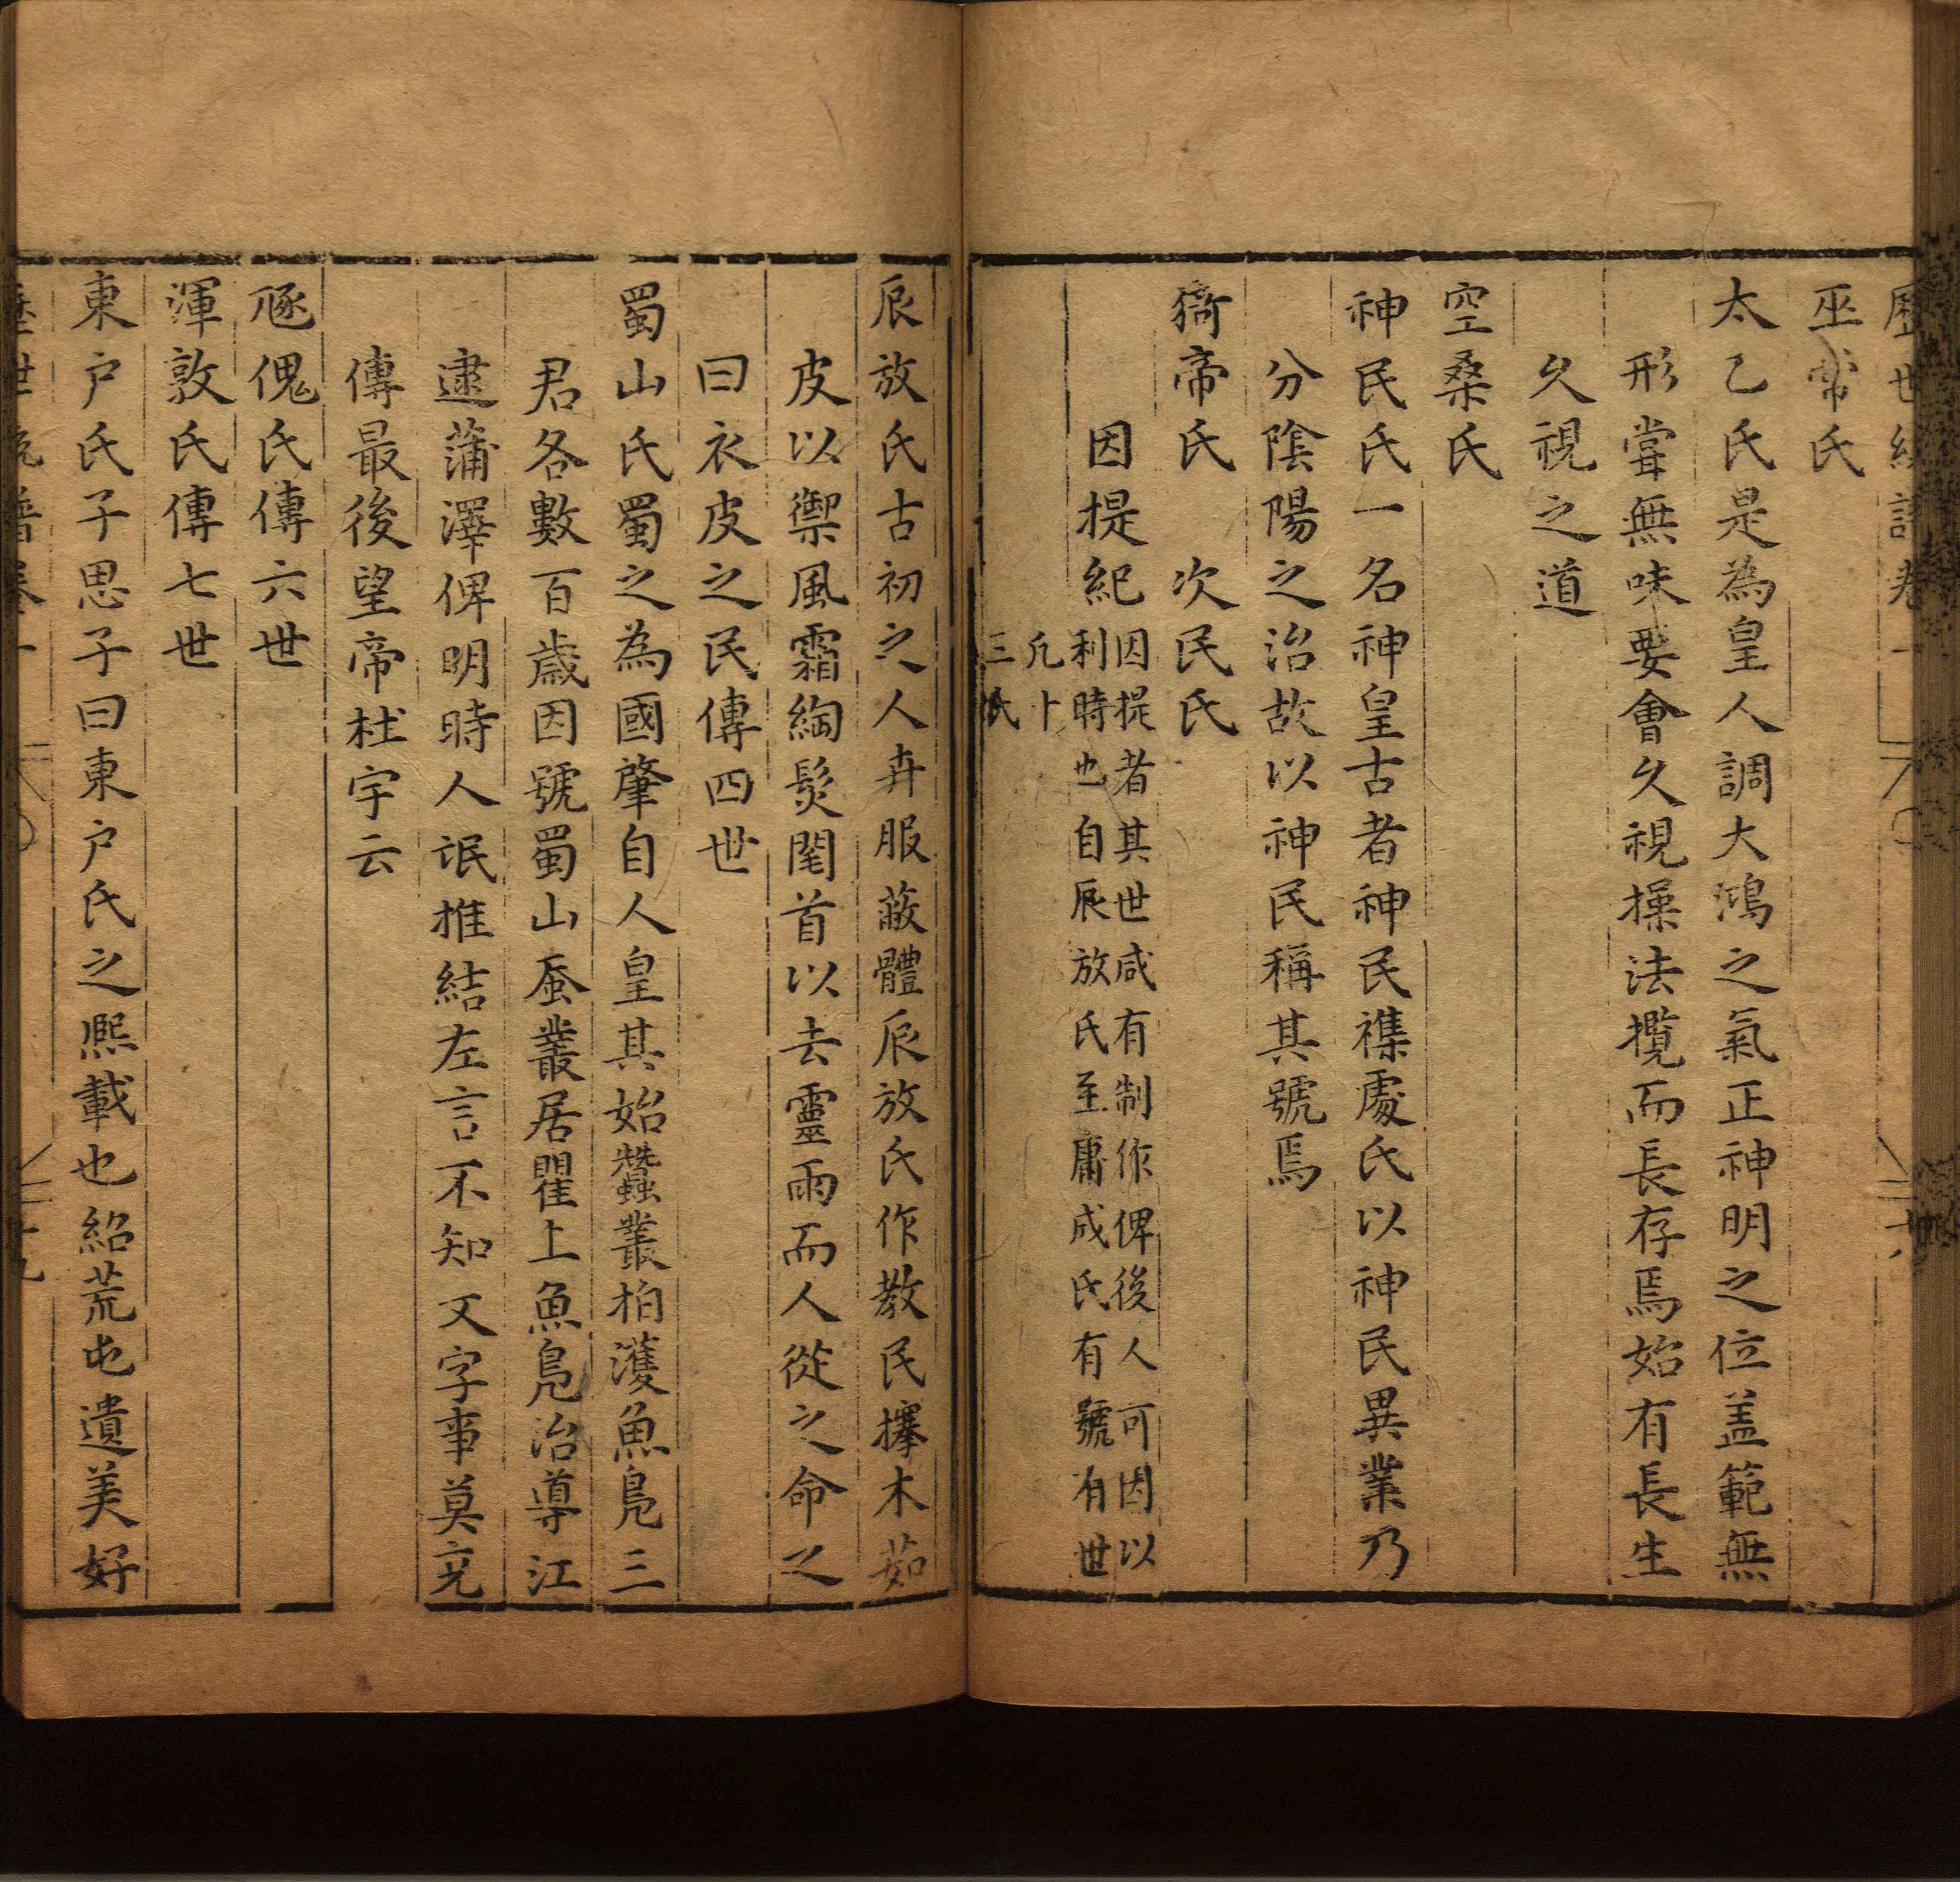 歷世統譜卷一
巫常氏
太乙氏是為皇人調大鴻之氣正神明之位盖範無
形嘗無味要會久視操法攬而長存焉始有長生
久視之道
空桑氏
神民氏一名神皇古者神民襍處氏以神民異業乃
分陰陽之治故以神民稱其號焉
猗帝氏　次民氏
因提紀
因提者其世咸有制作俾後人可因以
利時也自辰放氏至庸成氏有號有世
凡十
三氏
辰放氏古初之人卉服蔽體辰放氏作教民搴木茹
皮以禦風霜綯髮閺首以去靈雨而人從之命之
曰衣皮之民傳四世
蜀山氏蜀之為國肇自人皇其始蠶叢柏濩魚鳧三
君各數百歲因號蜀山蚕叢居瞿上魚鳧治導江
逮蒲澤俾明時人氓推結左言不知文字事莫克
傳最後望帝杜宇云
豗傀氏傳六世
渾敦氏傳七世
東户氏子思子曰東户氏之熈載也紹荒屯遺美好
歷世統譜卷一